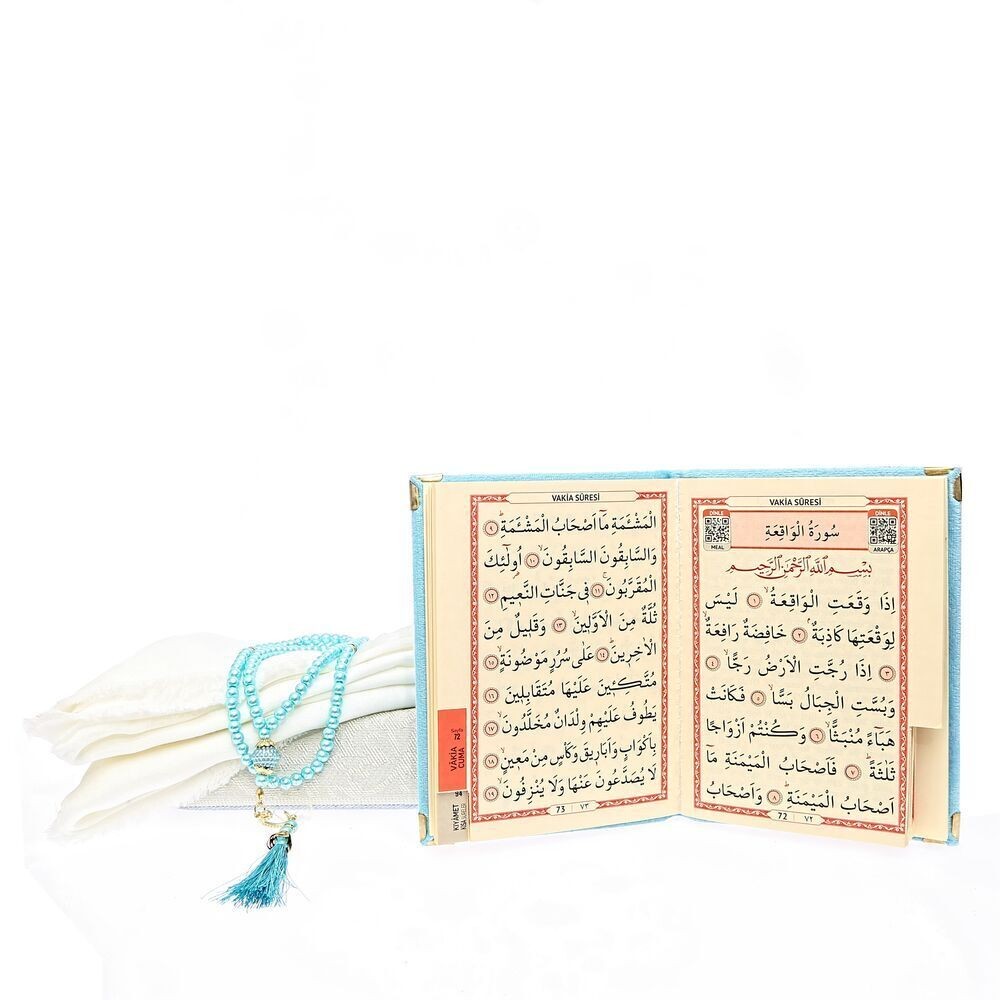 VAKİA SÛRESİ
DİNLE
MEAL
سُورَةُ الْوَاقِعَةِ
DİNLE
ARAPÇA
بِسْمِ اللّٰهِ الرَّحْمٰنِ الرَّحِيمِ
اِذَا وَقَعَتِ الْوَاقِعَةُۙ ﴿١﴾ لَيْسَ
لِوَقْعَتِهَا كَاذِبَةٌۢ ﴿٢﴾ خَافِضَةٌ رَافِعَةٌۙ
﴿٣﴾ اِذَا رُجَّتِ الْاَرْضُ رَجًّاۙ ﴿٤﴾
وَبُسَّتِ الْجِبَالُ بَسًّاۙ ﴿٥﴾ فَكَانَتْ
هَبَٓاءً مُنْبَثًّاۙ ﴿٦﴾ وَكُنْتُمْ اَزْوَاجًا
ثَلٰثَةًۜ ﴿٧﴾ فَاَصْحَابُ الْمَيْمَنَةِ مَٓا
اَصْحَابُ الْمَيْمَنَةِۜ ﴿٨﴾ وَاَصْحَابُ
72 ٧٢
VAKİA SÛRESİ
الْمَشْـَٔمَةِ مَٓا اَصْحَابُ الْمَشْـَٔمَةِۜ ﴿٩﴾
وَالسَّابِقُونَ السَّابِقُونَۙ ﴿١٠﴾ اُو۬لٰٓئِكَ
الْمُقَرَّبُونَۚ ﴿١١﴾ فِي جَنَّاتِ النَّعِيمِ ﴿١٢﴾
ثُلَّةٌ مِنَ الْاَوَّلِينَۙ ﴿١٣﴾ وَقَلِيلٌ مِنَ
الْاٰخِرِينَۜ ﴿١٤﴾ عَلٰى سُرُرٍ مَوْضُونَةٍۙ ﴿١٥﴾
مُتَّكِـِٔينَ عَلَيْهَا مُتَقَابِلِينَ ﴿١٦﴾
يَطُوفُ عَلَيْهِمْ وِلْدَانٌ مُخَلَّدُونَۙ ﴿١٧﴾
بِاَكْوَابٍ وَاَبَارِيقَ وَكَأْسٍ مِنْ مَعِينٍۙ ﴿١٨﴾
لَا يُصَدَّعُونَ عَنْهَا وَلَا يُنْزِفُونَۙ ﴿١٩﴾
73 ٧٣
Sayfa
72
VAKİA
CUMA
94
KIYÂMET
KISA SURELER